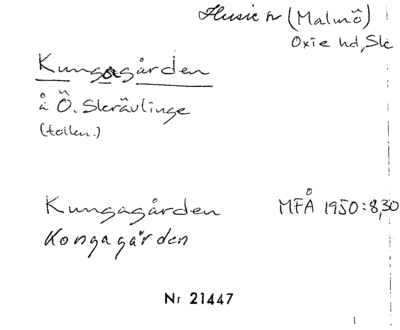 Husie sn (Malmö)
Oxie hd, Sk
Kungagården
å Ö. Skrävlinge
(tollen.)
Kungagården MFÅ 1950:8,30
Kongagården
Nr 21447